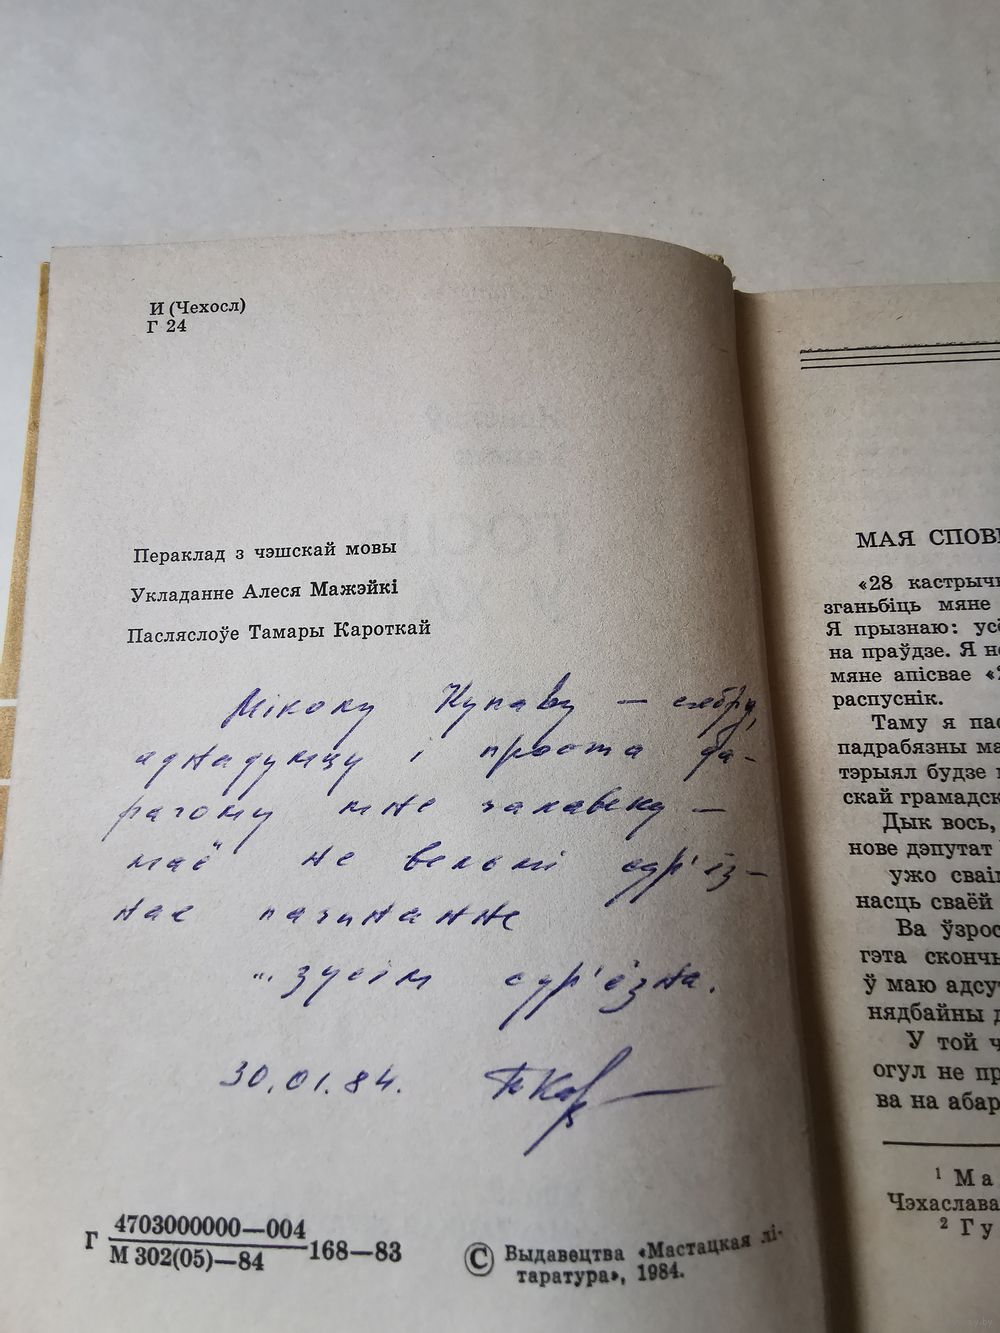 И (Чехосл)
Г 24
Пераклад з чэшскай мовы
Укладанне Алеся Мажэйкі
Пасляслоўе Тамары Кароткай
Міколу Купаву — сябру,
аднадумцу і проста да-
рагому мне чалавеку —
маё не вельмі сур'ёз-
нае пачынанне
... зусім сур'ёзна.
30.01.84.
Г 4703000000—004
М 302(05)—84
168—83
© Выдавецтва «Мастацкая лі-
таратура», 1984.
МАЯ СПОВ
«28 кастрычн
зганьбіць мяне
Я прызнаю: усё
на праўдзе. Я не
мяне апісвае «
распуснік.
Таму я пас
падрабязны ма
тэрыял будзе
скай грамадск
Дык вось,
нове дэпутат
ужо сваі
насць сваёй
Ва ўзрос
гэта сконч
ў маю адсу
нядбайны д
У той ч
огул не пр
ва на абар
1 Ма
Чэхаслава
2 Гу